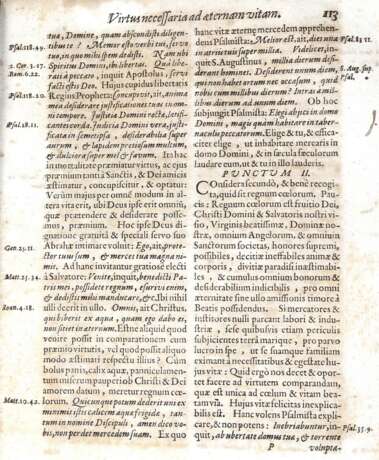 Virtus necessaria ad æternam vitam. 113
tua, Domine, quam abscondisti diligen-
tibus te? Memor esto verbi tui, servo
tuo, in quo mihi spem dedisti. Nam ubi
Spiritus Domini, ibi libertas. Quia libe-
rati a peccato, inquit Apostolus, servi
facti estis Deo. Hujus cupidus libertatis
Regius Propheta: concupivit, ait, anima
mea desiderare justificationes tuas in omni
tempore. Justitia Domini recta, lætifi-
cantes corda. Judicia Domini vera, justifi-
cata in semetipsa, desiderabilia super
aurum, & lapidem pretiosum multum,
& dulciora super mel & favum. Ita hac
in mortalitate præmiatur virtus, ac ejus
præmium tanti à Sanctis, & Dei amicis
æstimatur, concupiscitur, & optatur:
Verùm majus per omnē modum in al-
tera vita erit, ubi Deus ipse erit omniū,
quæ prætendere & desiderate posse-
mus, præmium. Hoc ipse Deus di-
gnatione gratuita & speciali servo suo
Abrahæ intimare voluit: Ego, ait, prote-
ctor tuus sum, & merces tua magna ni-
mis. Ad hanc invitantur gratiose electi
à Salvatore: Venite, inquit, benedicti Pa-
tris mei, possidete regnum, esurivi enim,
& dedistis mihi manducare, &c. Ibi nihil
usili decrit in ullo. Omnis, ait Christus,
qui biberit ex aqua, quam ego dabo ei,
non sitiet in æternum. Estne aliquid quod
venire possit in comparationem cum
præmio virtutis, vel quod possit aliquo
modo æstimari respectu illius? Cùm
bolus panis, calix aquæ, panniculamen-
tum miserum pauperi ob Christi & Dei
amorem datum, meretur regnum cœ-
lorum. Quicunque potum dederit uni ex
minimis istis calicem aquæ frigidæ, tan-
tum in nomine Discipuli, amen dico vo-
bis, non perdet mercedem suam. Ex quo
hanc vitæ æternę mercedem apprehen-
dens Psalmista: Melior est, ait, dies una
in atriis tuis super millia. Videlicet, in-
quit S. Augustinus, millia dierum desi-
derant homines. Desiderent unum diem,
qui non habet ortum, & occasum; annos
cui non cum mobile diem? Intra à mil-
libus dierum ad unum diem. Ob hoc
subjungit Psalmista: Elegi abjectus in domo
Domini, magis quàm habitare in taber-
naculis peccatorum. Elige & tu, & effica-
citer elige, ut inhabitare mercaris in
domo Domini, & in sæcula sæculorum
laudare eum, qui te in illo lauderis.
PUNCTUM II.
Considera secundò, & benè cogita,
quid sit regnum cœlorum. Pau-
cis: Regnum cœlorum est fruitio Dei,
Christi Domini & Salvatoris nostri vi-
sio, Virginis beatissimæ, Dominæ no-
stræ, omnium Angelorum, & omnium
Sanctorum societas, honores supremi,
possibiles, decitiæ ineffabiles animæ &
corporis, divitiæ innumerabiles, cardo
& cumulus omnium bonorum &
desiderabilium indicibilis, pro omni
æternitate sine ullo amissionis timore à
Beatis possidendus. Si mercatores &
institores nulli parcant labori & indu-
striæ, sese quibusvis etiam periculis
subjicientes terrâ marique; pro parvo
lucro in spe, ut se suamque familiam
eximant à necessitatibus & egestate hu-
jus vitæ: Quid ergò nos decet & opor-
tet facere ad virtutem comparandam,
quæ est unica ad cœlum & vitam bea-
tam via. Hujus vitæ felicitas inexplica-
bilis est. Hanc volens Psalmista expli-
care, & non potens: Inebriabuntur, in-
quit, ab ubertate domus tuæ, & torrente
P volupta-
Psal. 118.49.
2. Cor. 3.17.
Rom. 6.22.
Psal. 118.20.
Psal. 18.11.
Gen. 23.11.
Matt. 25.34.
Ioan. 4.18.
Matt. 10.42.
Psal. 83.11.
S. Aug. sup.
Psal.
Psal. 35.9.